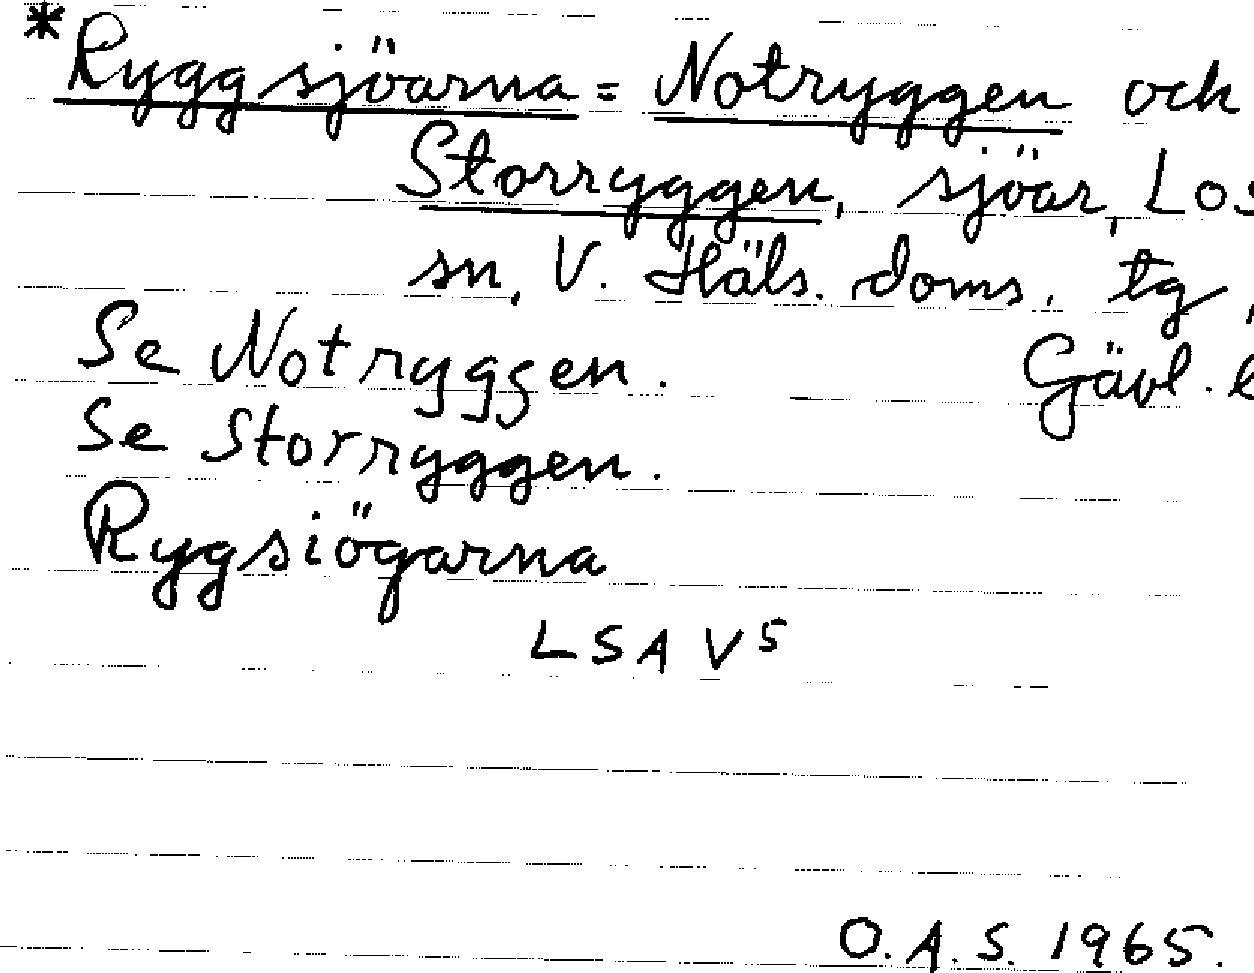 *Ryggsjöarna = Notryggen och
Storryggen, sjöar, Los
sn, V. Häls. doms. tg,
Se Notryggen. Gävl.
Se Storryggen.
Rygsiögarna
LSA V5
O.A.S. 1965.